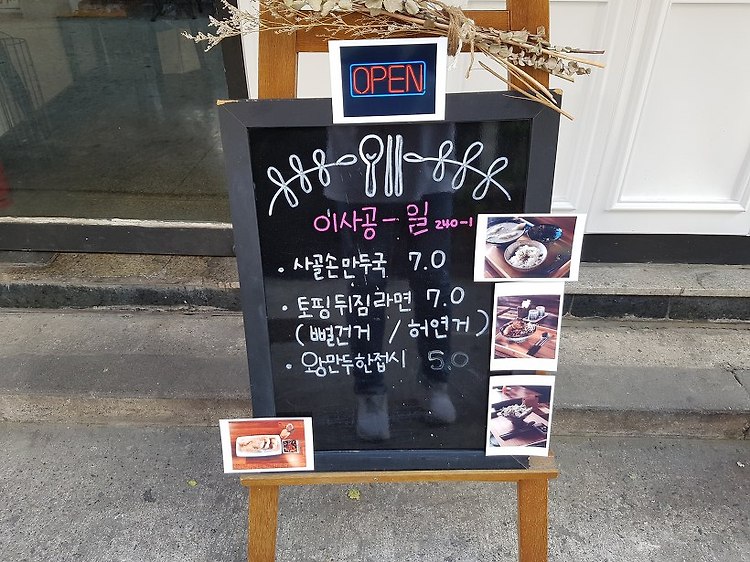 OPEN
이사공-일 240-1
• 사골손만두국 7.0
• 토핑뒤짐라면 7.0
(뻘건거 / 허연거)
• 왕만두한접시 5.0